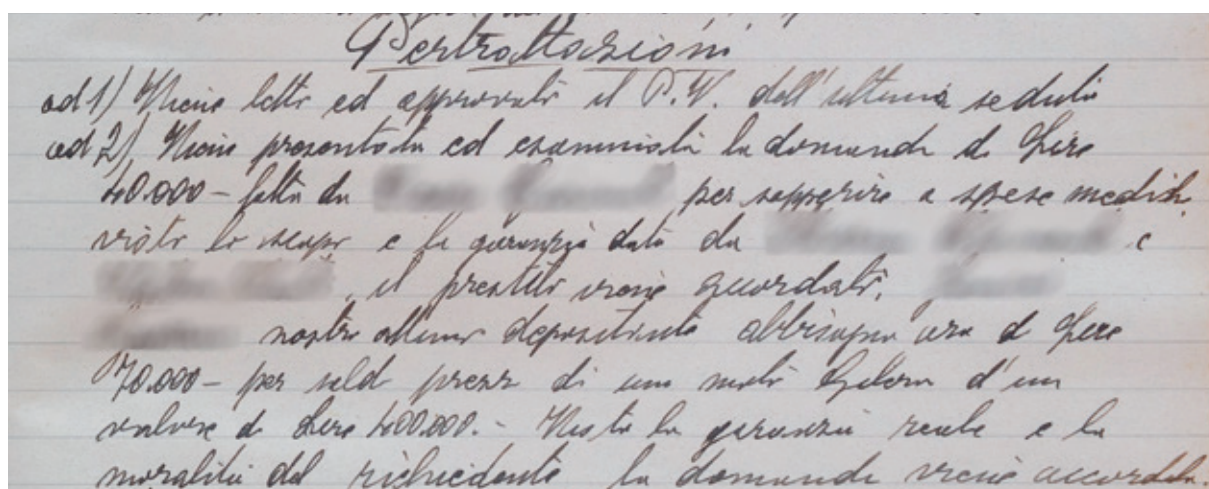 Pertrattazioni
ad 1) Viene letto ed approvato il P.V. dell'ultima seduta
ad 2) Viene presentata ed esaminata la domanda di Lire
40.000 - fatta da per sopperire a spese mediche,
visto lo scopo e la garanzia data da e
, il prestito viene accordato.
nostro ottimo depositante abbisogna ora di Lire
70.000 - per saldo prezzo di una moto Gilera d'un
valore di Lire 400.000. - Vista la garanzia reale e la
moralità del richiedente la domanda viene accordata.